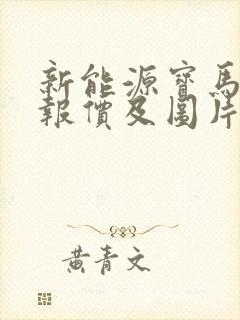 新能源寶馬
報價及圖片
黃青文